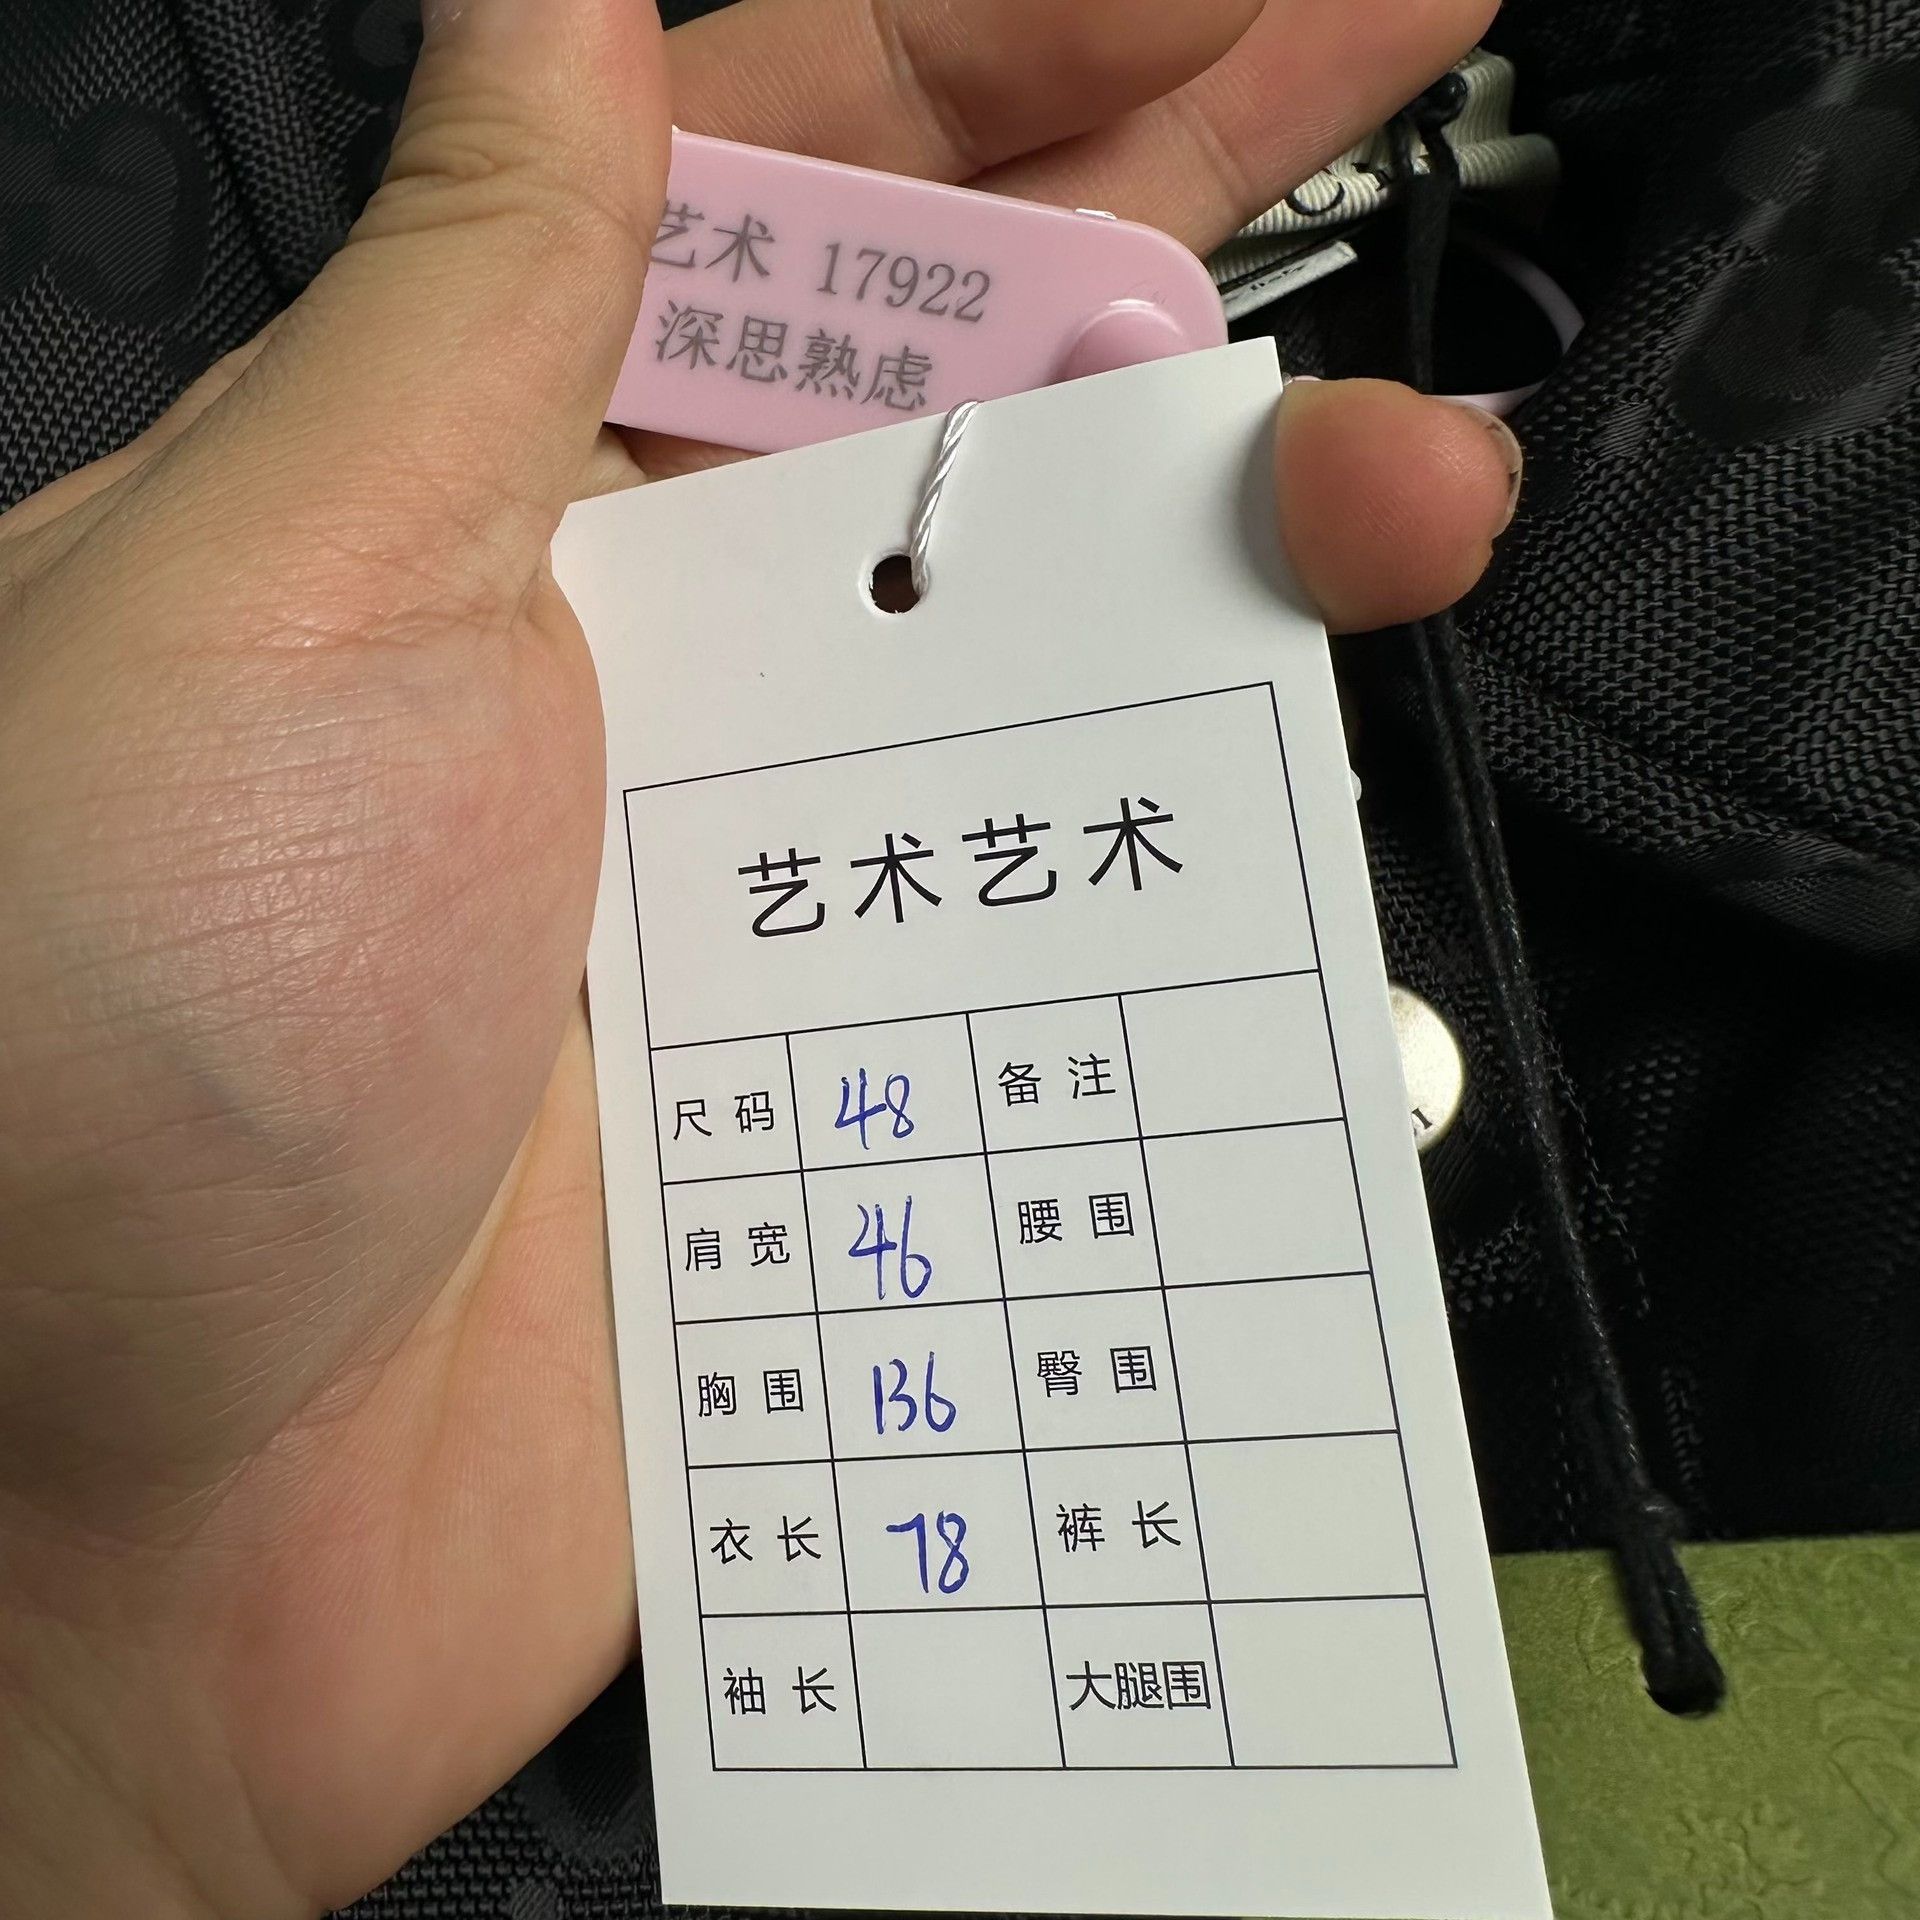 艺术 17922
深思熟虑
艺术艺术
尺码 48 备注
肩宽 46 腰围
胸围 136 臀围
衣长 78 裤长
袖长 大腿围